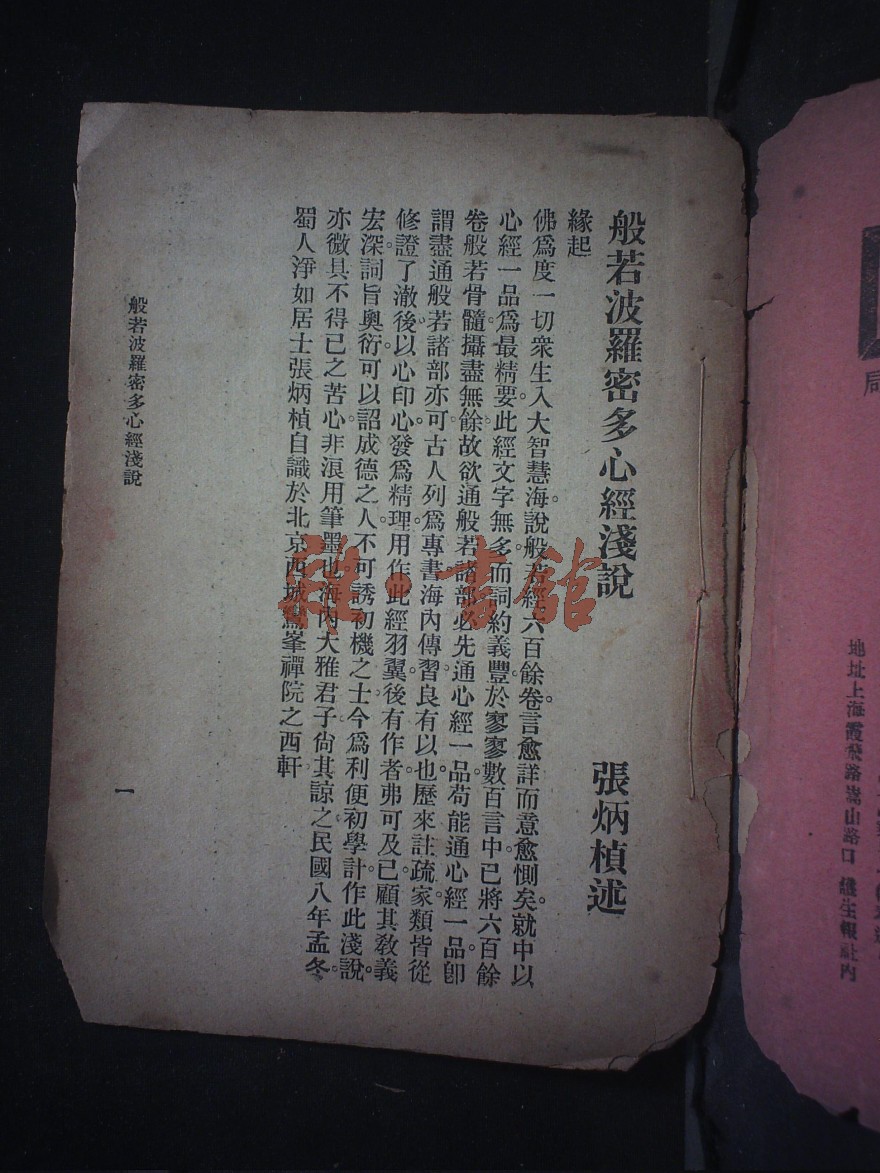 般若波羅密多心經淺說
張炳楨述
緣起
佛爲度一切衆生入大智慧海。說般若經六百餘卷。言愈詳而意愈惻矣。就中以
心經一品爲最精要。此經文字無多。而詞約義豐。於寥寥數百言中。已將六百餘
卷般若骨髓攝盡無餘。故欲通般若諸部。必先通心經一品。苟能通心經一品。卽
謂盡通般若諸部亦可。古人列爲專書。海內傳習。良有以也。歷來註疏家。類皆從
修證了澈後。以心印心。發爲精理。用作此經羽翼。後有作者。弗可及已。顧其敎義
宏深。詞旨奧衍。可以詔成德之人。不可誘初機之士。今爲利便初學計。作此淺說。
亦微具不得已之苦心。非浪用筆墨也。海內大雅君子。尙其諒之。民國八年孟冬。
蜀人淨如居士張炳楨自識於北京西城鷲峯禪院之西軒
般若波羅密多心經淺說
一
雜·書館
地址上海霞飛路嵩山路口
報社內
局